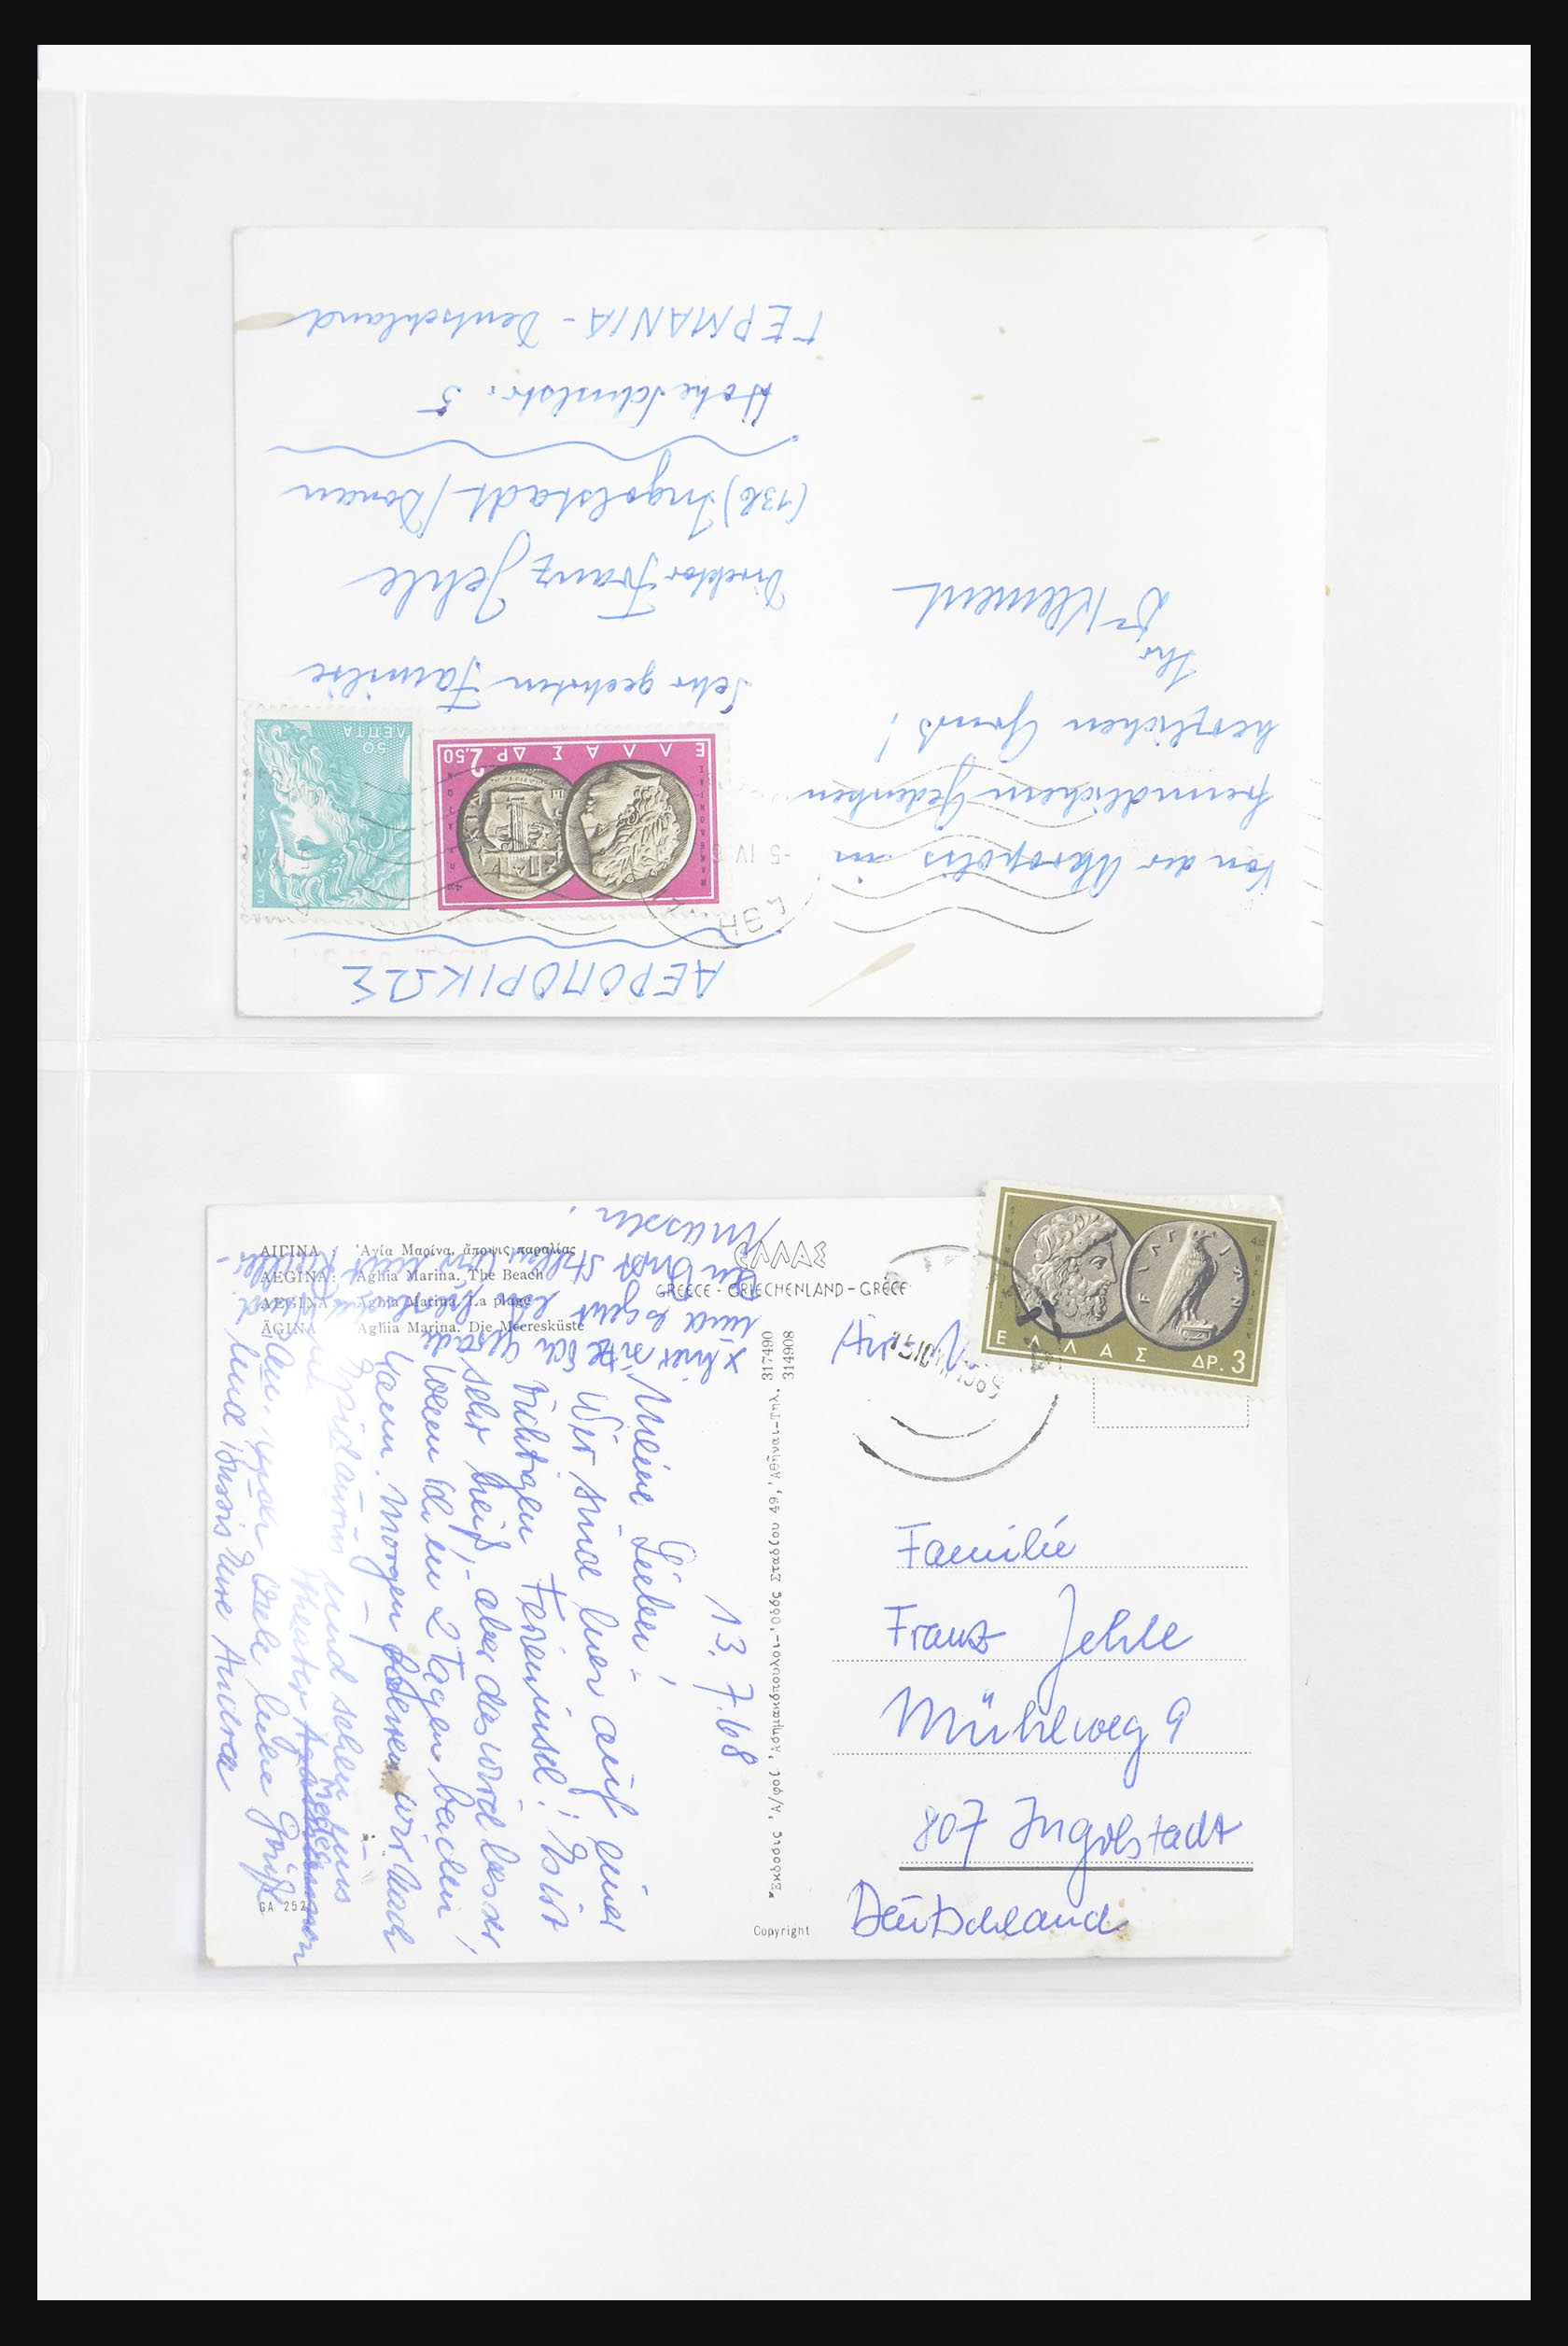 ΑΕΡΟΠΟΡΙΚΩΣ
Von der Akropolis in
freundlichem Gedenken
herzlichen Gruß!
Ihr
Dr Klement
ΕΛΛΑΣ ΔΡ. 2,50
50
ΛΕΠΤΑ
ΕΛΛΑΣ
-5 IV
Sehr geehrten Familie
Direktor Franz Jehle
(13b) Ingolstadt / Donau
Hohe Schulstr. 5
ΓΕΡΜΑΝΙΑ - Deutschland
ΑΙΓΙΝΑ : Ἁγία Μαρίνα, ἄποψις παραλίας
AEGINA : Aghia Marina. The Beach
AEGINA : Aghia Marina. La plage
ÄGINA Aghia Marina. Die Meeresküste
ΕΛΛΑΣ
GREECE - GRIECHENLAND - GRÈCE
ΕΛΛΑΣ ΔΡ. 3
Air
13.7.68
Meine Lieben!
Wir sind hier auf einer
richtigen Ferieninsel! Es ist
sehr heiß, aber das wird besser,
wenn ich in 2 Tagen baden
kann. Morgen fahren wir nach
Epidauros und sehen uns
Theater
viele liebe Grüße
und Bussis Eure Andrea
x hier sitze ich gerade
und
müssen!
GA 252
Ἔκδοσις Ἀ/φοὶ Ἀσημακόπουλοι-Ὁδὸς Σταδίου 49, Ἀθῆναι-Τηλ. 317490
314908
Copyright
Familie
Franz Jehle
Mühlweg 9
807 Ingolstadt
Deutschland